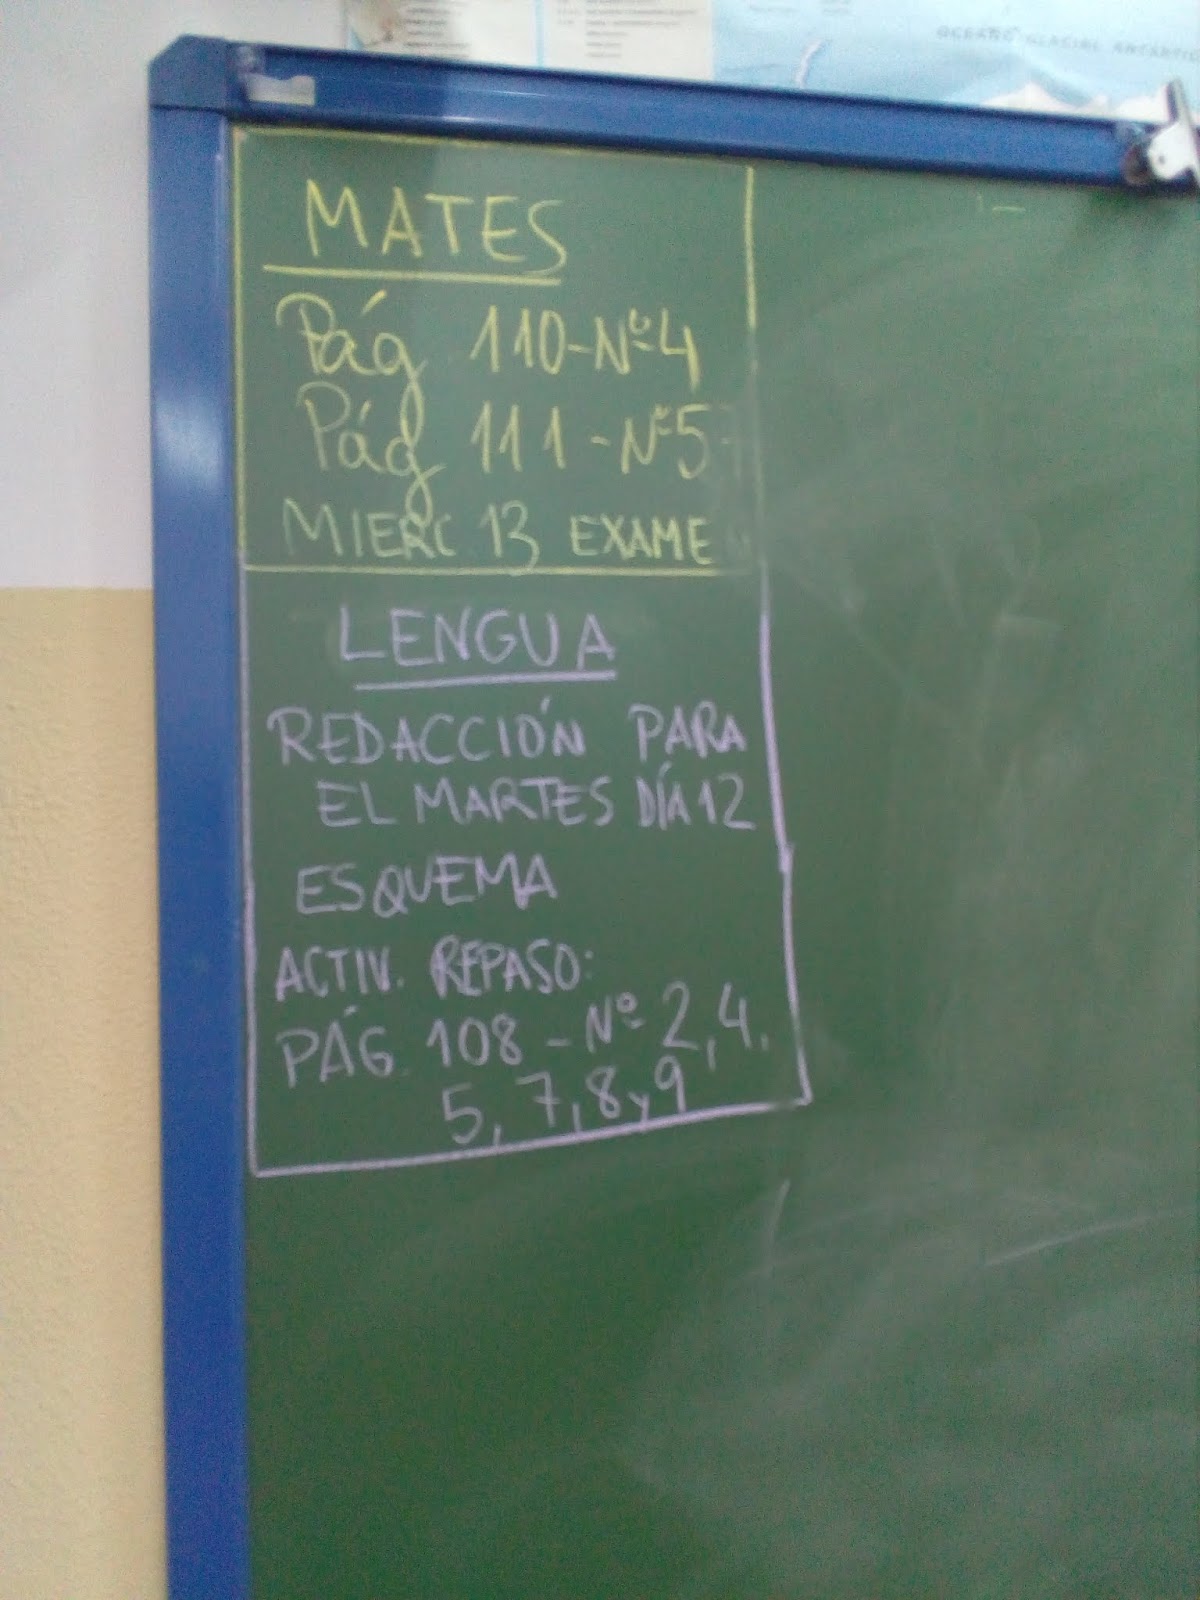 OCEANO GLACIAL ANTÁRTIC
MATES
Pág 110-Nº4
Pág 111-Nº5
MIERC 13 EXAME
LENGUA
REDACCIÓN PARA
EL MARTES DÍA 12
ESQUEMA
ACTIV. REPASO:
PÁG. 108 - Nº 2, 4,
5, 7, 8 y 9